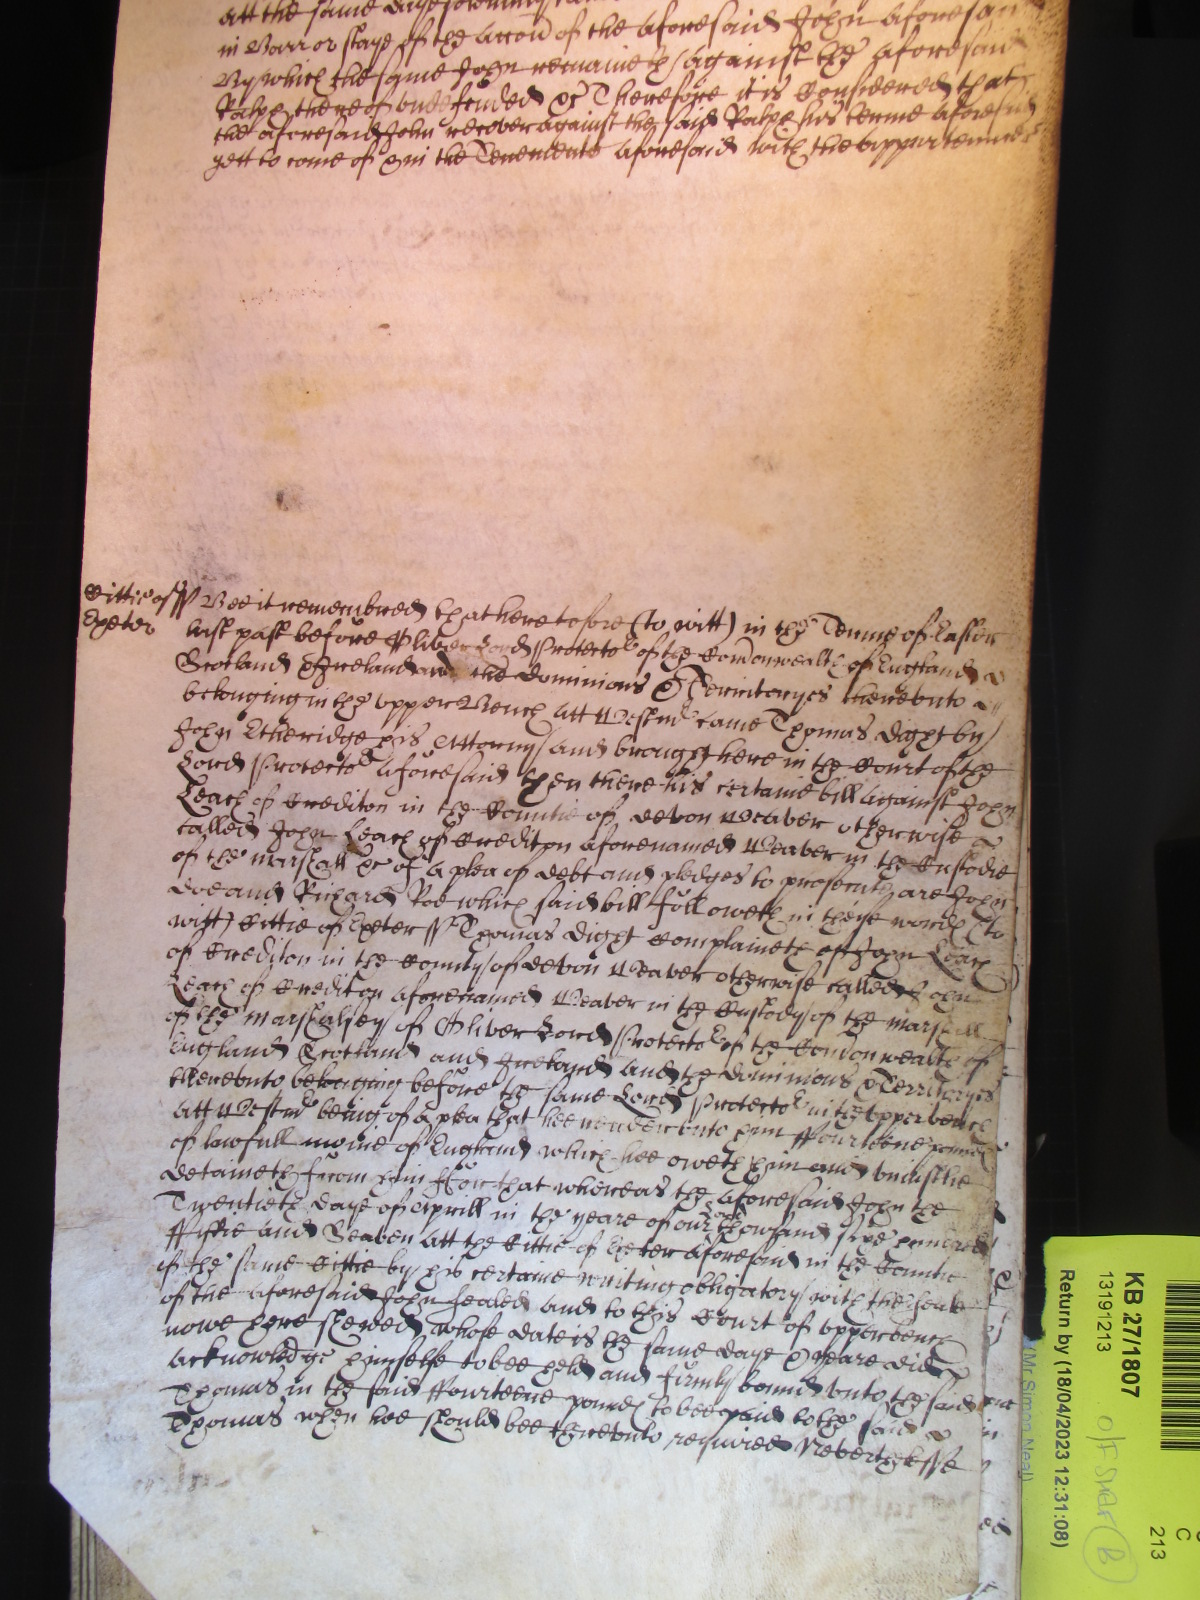 att the same daye solemnly
in Barr or staye of the accon of the aforesaid John aforesaid
By which the same John remaineth against the aforesaid
Ralph thereof undefended &c Therefore it is Considered that
the aforesaid John recover against the said Ralph his terme aforesaid
yett to come of & in the Tenements aforesaid with the appurtennces
Cittie of ss Bee it remembred that heretofore (to witt) in the Terme of Easter
Exeter last past before Oliver Lord Protector of the Comonwealth of England
Scotland & Ireland and the dominions & Territoryes thereunto
belonging in the upper Bench att Westmr came Thomas Dight by
John Etheridge his Attorny and brought here in the Court of the
Lord Protector aforesaid then there his certaine bill against John
Leach of Crediton in the Countie of devon Weaver otherwise
called John Leach of Crediton aforenamed Weaver in the Custodie
of the marshall &c of a plea of debt and pledges to prosecute are John
doe and Richard Roe which said bill followeth in these words (to
witt) Cittie of Exeter ss Thomas Dight Complaineth of John Leach
of Crediton in the County of devon Weaver otherwise called John
Leach of Crediton aforenamed Weaver in the Custody of the marshall
of the marshalsey of Oliver Lord Protector of the Comonwealth of
England Scotland and Ireland and the dominions & Territoryes
thereunto belonging before the same Lord Protector in the upper bench
att Westmr being of a plea that hee render unto him ffourteene pounds
of lawfull monie of England which hee oweth him and uniustlie
detaineth from him ffor that whereas the aforesaid John the
Twentieth daye of Aprill in the yeare of our Lord thowsand sixe hundred
ffiftie and Seaven att the Cittie of Exeter aforesaid in the Countie
of the same Cittie by his certaine writing obligatory with the seale
of the aforesaid John sealed and to this Court of upper bench
nowe here shewed whose date is the same daye & yeare did
acknowledge himselfe to bee held and firmly bound unto the said
Thomas in the said ffourteene pounds to bee paid to the said
Thomas when hee should bee thereunto required Neverthelesse
KB 27/1807
13191213
Return by (18/04/2023 12:31:08)
(Mr Simon Neal)
C
213
B